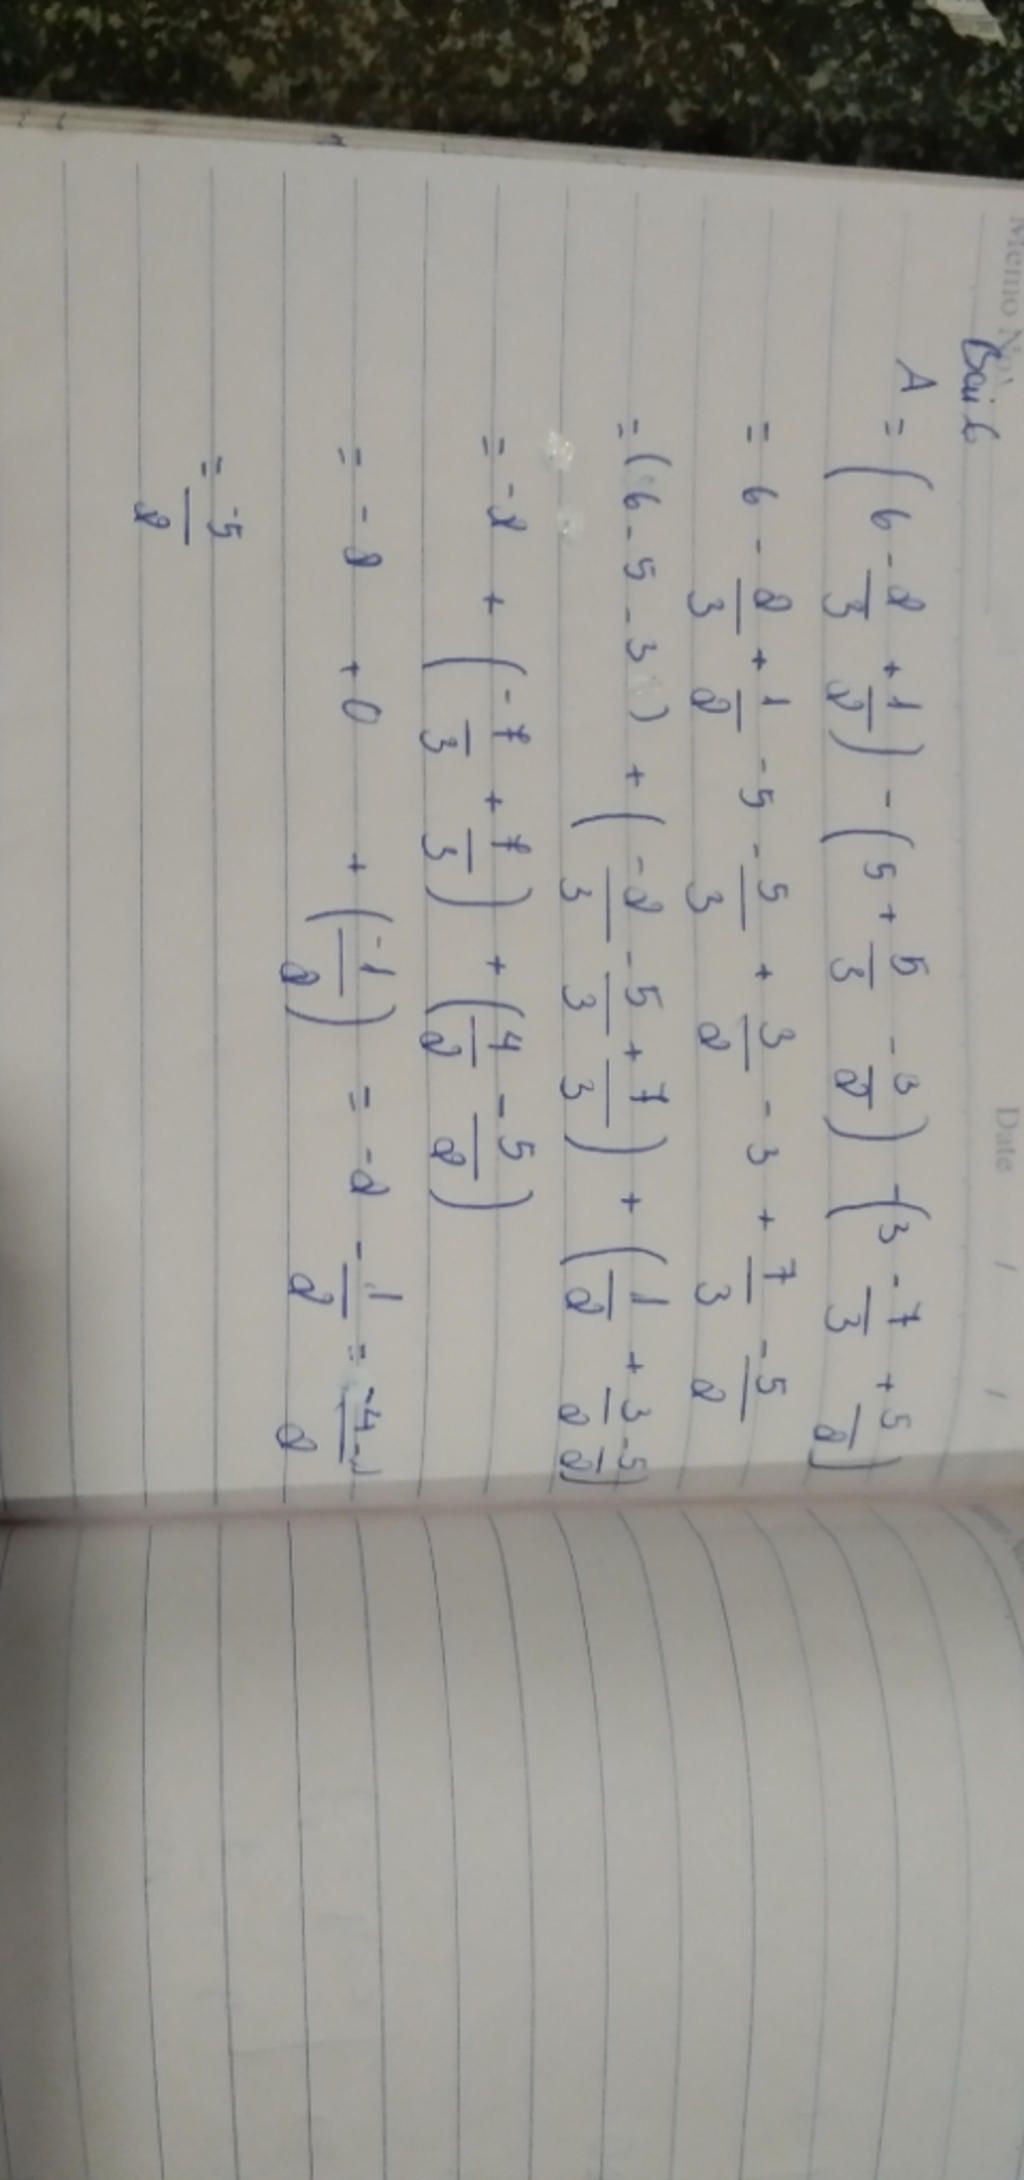 Memo No.
Date / /
Bài 6
A = (6 - 2/3 + 1/2) - (5 + 5/3 - 3/2) - (3 - 7/3 + 5/2)
= 6 - 2/3 + 1/2 - 5 - 5/3 + 3/2 - 3 + 7/3 - 5/2
= (6 - 5 - 3) + (-2/3 - 5/3 + 7/3) + (1/2 + 3/2 - 5/2)
= -2 + (-7/3 + 7/3) + (4/2 - 5/2)
= -2 + 0 + (-1/2) = -2 - 1/2 = -4-1/2
= -5/2